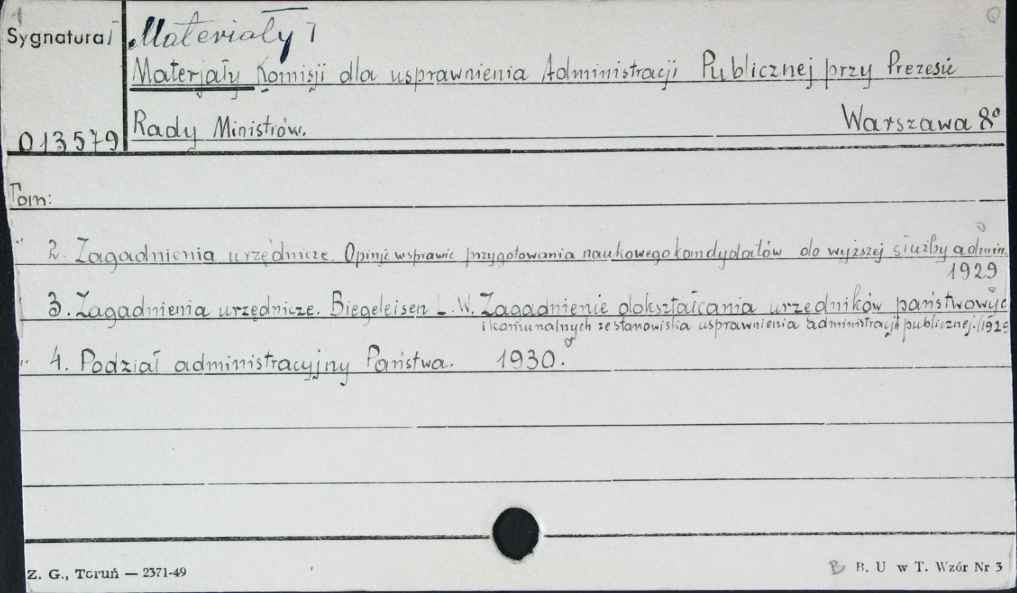 Sygnatura
Materiały I
Materjały Komisji dla usprawnienia Administracji Publicznej przy Prezesie
013579 Rady Ministrów. Warszawa 8°
Tom:
" 2. Zagadnienia urzędnicze. Opinje w sprawie przygotowania naukowego kandydatów do wyższej służby admin.
1929
3. Zagadnienia urzędnicze. Biegeleisen L. W. Zagadnienie dokształcania urzędników państwowyc
i komunalnych ze stanowiska usprawnienia administracji publicznej.
" 4. Podział administracyjny Państwa. 1930.
Z. G., Toruń — 2371-49
B. U w T. Wzór Nr 3